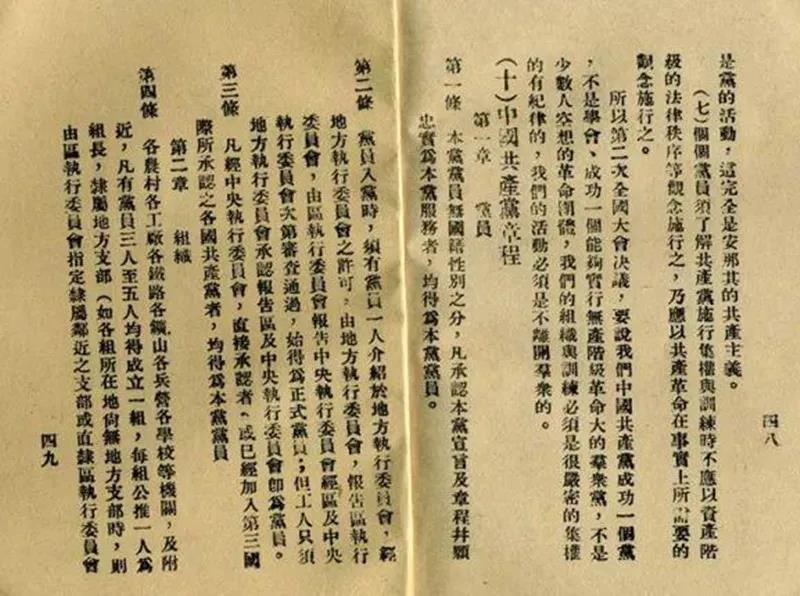 是黨的活動，這完全是安那其的共產主義。
(七)個個黨員須了解共產黨施行集權與訓練時不應以資產階
級的法律秩序等觀念施行之，乃應以共產革命在事實上所需要的
觀念施行之。
所以第二次全國大會決議，要說我們中國共產黨成功一個黨
，不是學會、成功一個能夠實行無產階級革命大的羣衆黨，不是
少數人空想的革命團體，我們的組織與訓練必須是很嚴密的集權
的有紀律的，我們的活動必須是不離開羣衆的。
(十)中國共產黨章程
第一章 黨員
第一條 本黨黨員無國籍性別之分，凡承認本黨宣言及章程并願
忠實爲本黨服務者，均得爲本黨黨員。
四八
第二條 黨員入黨時，須有黨員一人介紹於地方執行委員會，經
地方執行委員會之許可，由地方執行委員會，報告區執行
委員會，由區執行委員會報告中央執行委員會經區及中央
執行委員會次第審查通過，始得爲正式黨員；但工人只須
地方執行委員會承認報告區及中央執行委員會卽爲黨員。
第三條 凡經中央執行委員會，直接承認者、或已經加入第三國
際所承認之各國共產黨者，均得爲本黨黨員
第二章 組織
第四條 各農村各工廠各鐵路各鑛山各兵營各學校等機關，及附
近，凡有黨員三人至五人均得成立一組，每組公推一人爲
組長，隸屬地方支部（如各組所在地尙無地方支部時，則
由區執行委員會指定隸屬鄰近之支部或直隸區執行委員會
四九